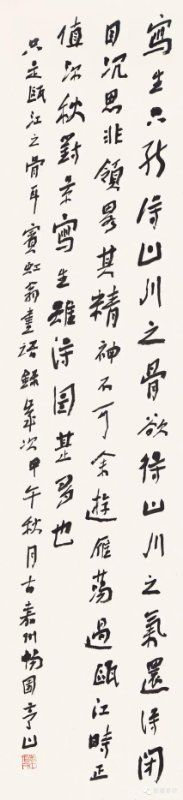 寫生只能得山川之骨欲得山川之氣還得閉
目沉思非領畧其精神不可余遊雁蕩過甌江時正
值深秋對景寫生雖得圖甚多也
只是甌江之骨耳賓虹翁畫語錄歲次甲午秋月古嘉州楊國山